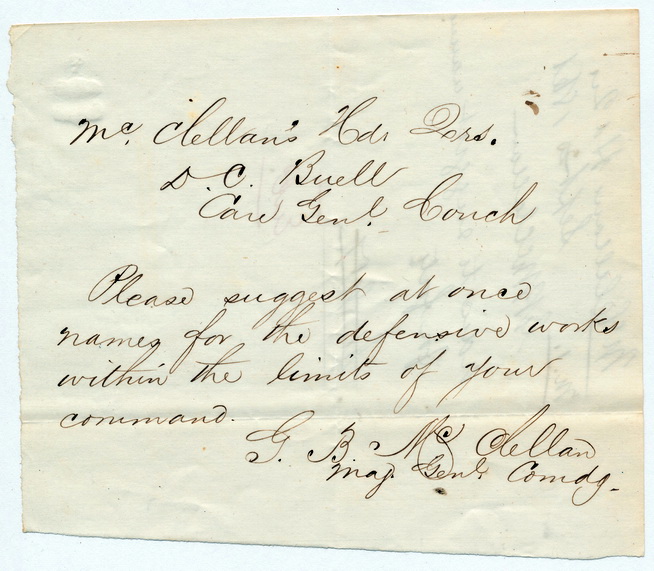 Mc. Clellan's Hd. Qrs.
D. C. Buell
Care Genl. Couch
Please suggest at once
names for the defensive works
within the limits of your
command.
G. B. Mc Clellan
Maj. Genl. Comdg.